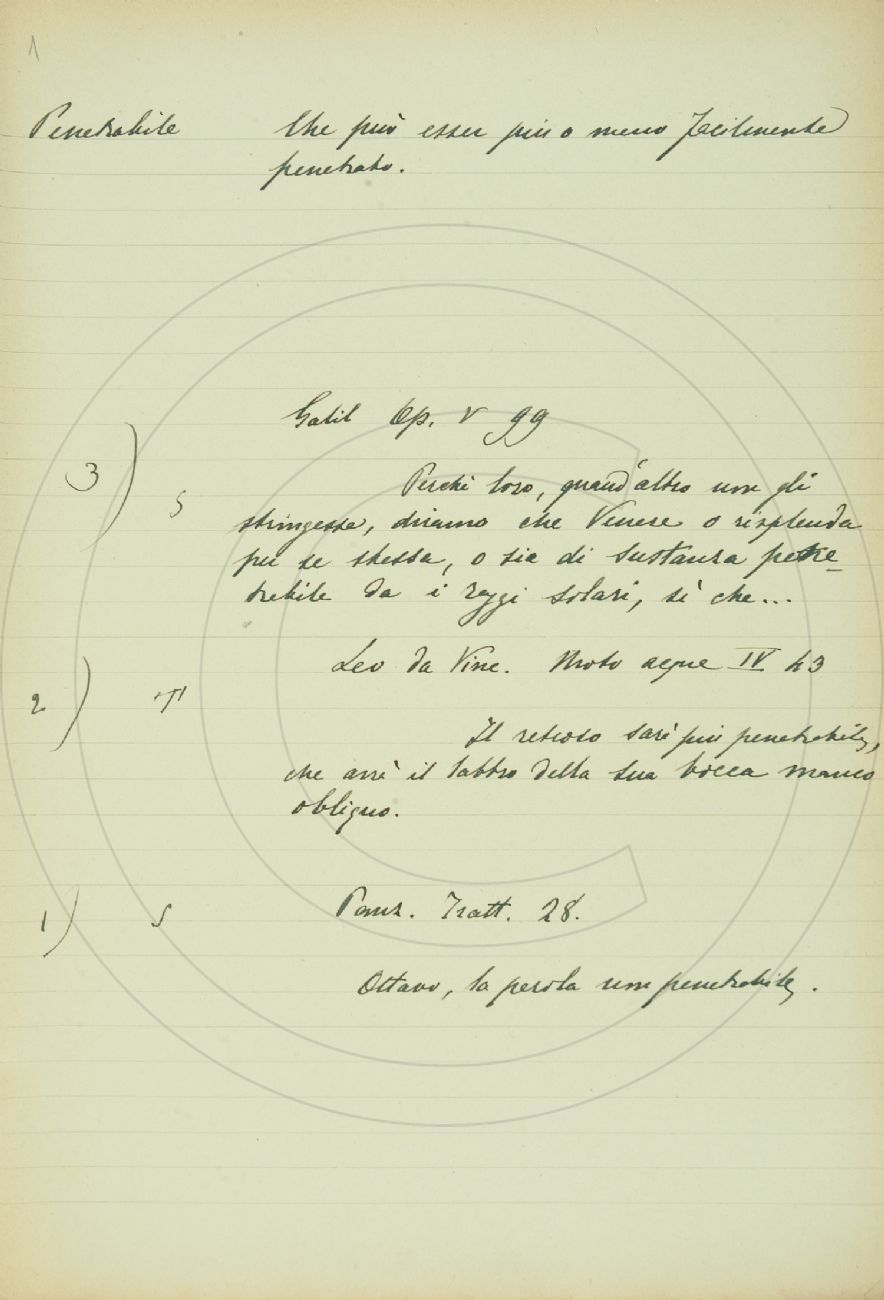 1
Penetrabile Che può esser più o meno facilmente
penetrato.
Galil Op. V 99
3) S Perchè loro, quand'altro non gli
stringesse, diriamo che Venere o risplenda
per se stessa, o sia di sustanza pene
trabile da i raggi solari, sì che...
Leo da Vinc. Moto acque IV 43
2) T Il retroso sarà più penetrabile,
che arrà il labbro della sua bocca manco
obliquo.
1) S Panz. Tratt. 28.
Ottavo, la parola non penetrabile.